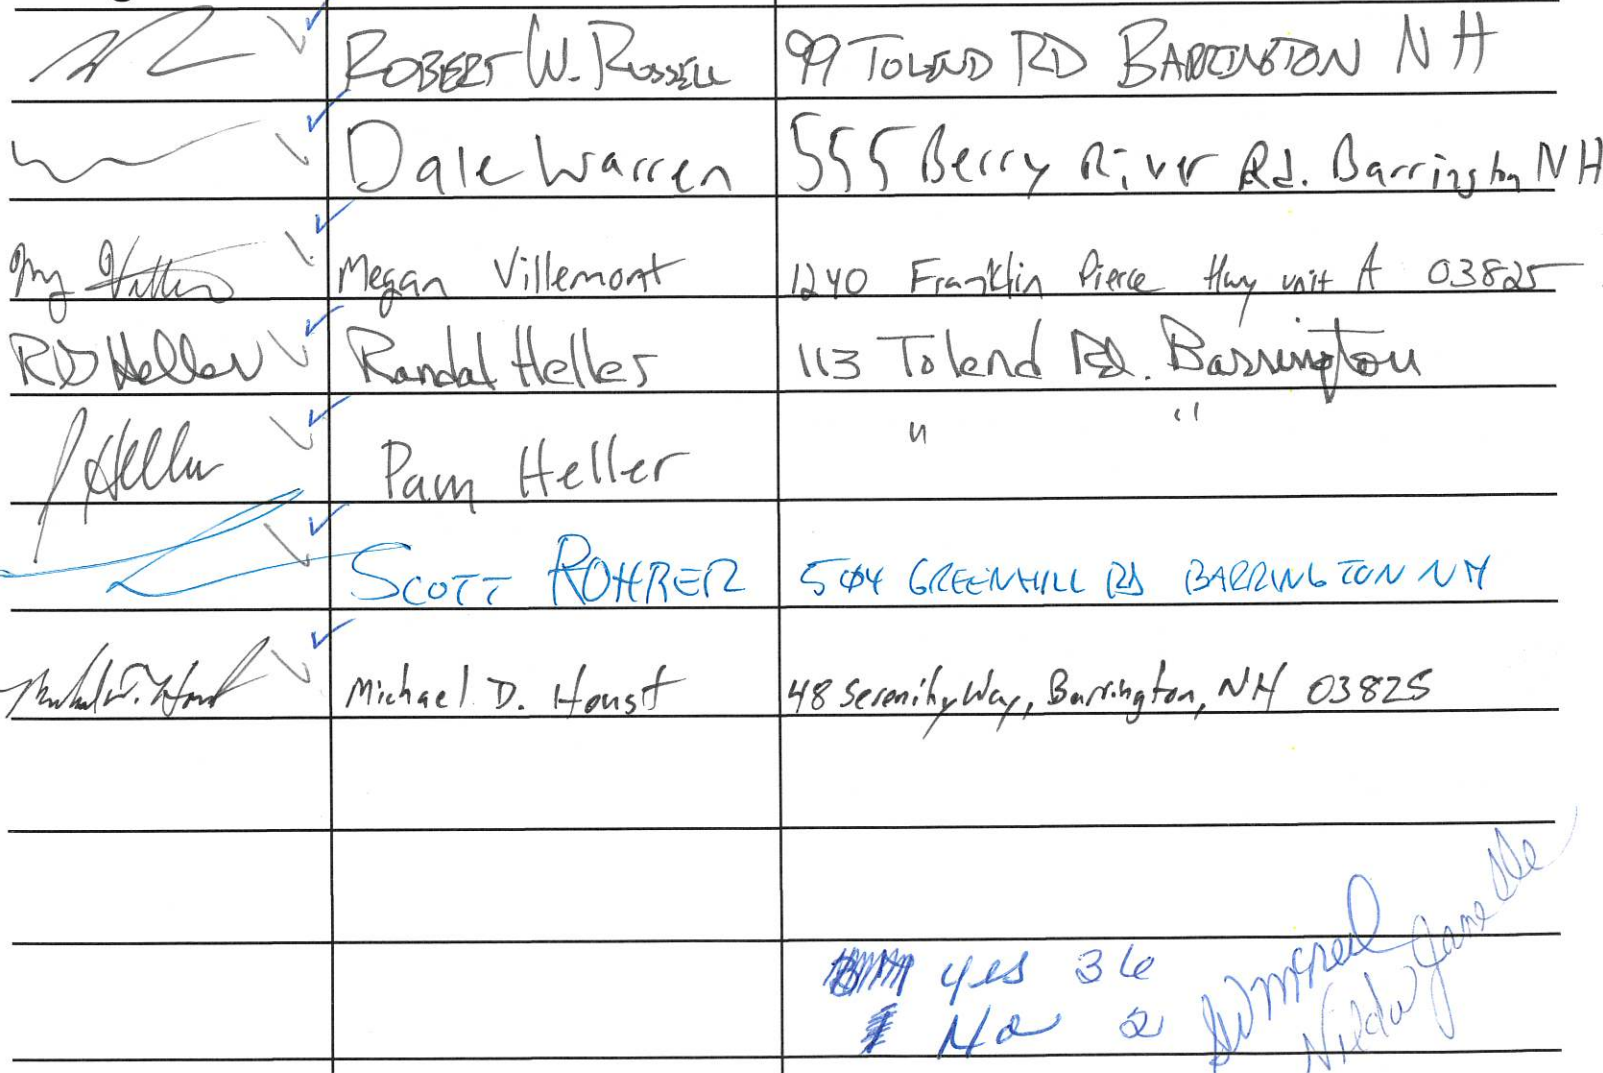 ROBERT W. RUSSELL 99 TOLEND RD BARRINGTON NH
Dale Warren 555 Berry River Rd. Barrington NH
Megan Villemont 1240 Franklin Pierce Hwy unit A 03825
RD Heller Randal Heller 113 Tolend Rd. Barrington
Heller Pam Heller " "
SCOTT ROHRER 504 GREENHILL RD BARRINGTON NH
Michael D. Houst 48 Serenity Way, Barrington, NH 03825
yes 36
No 2